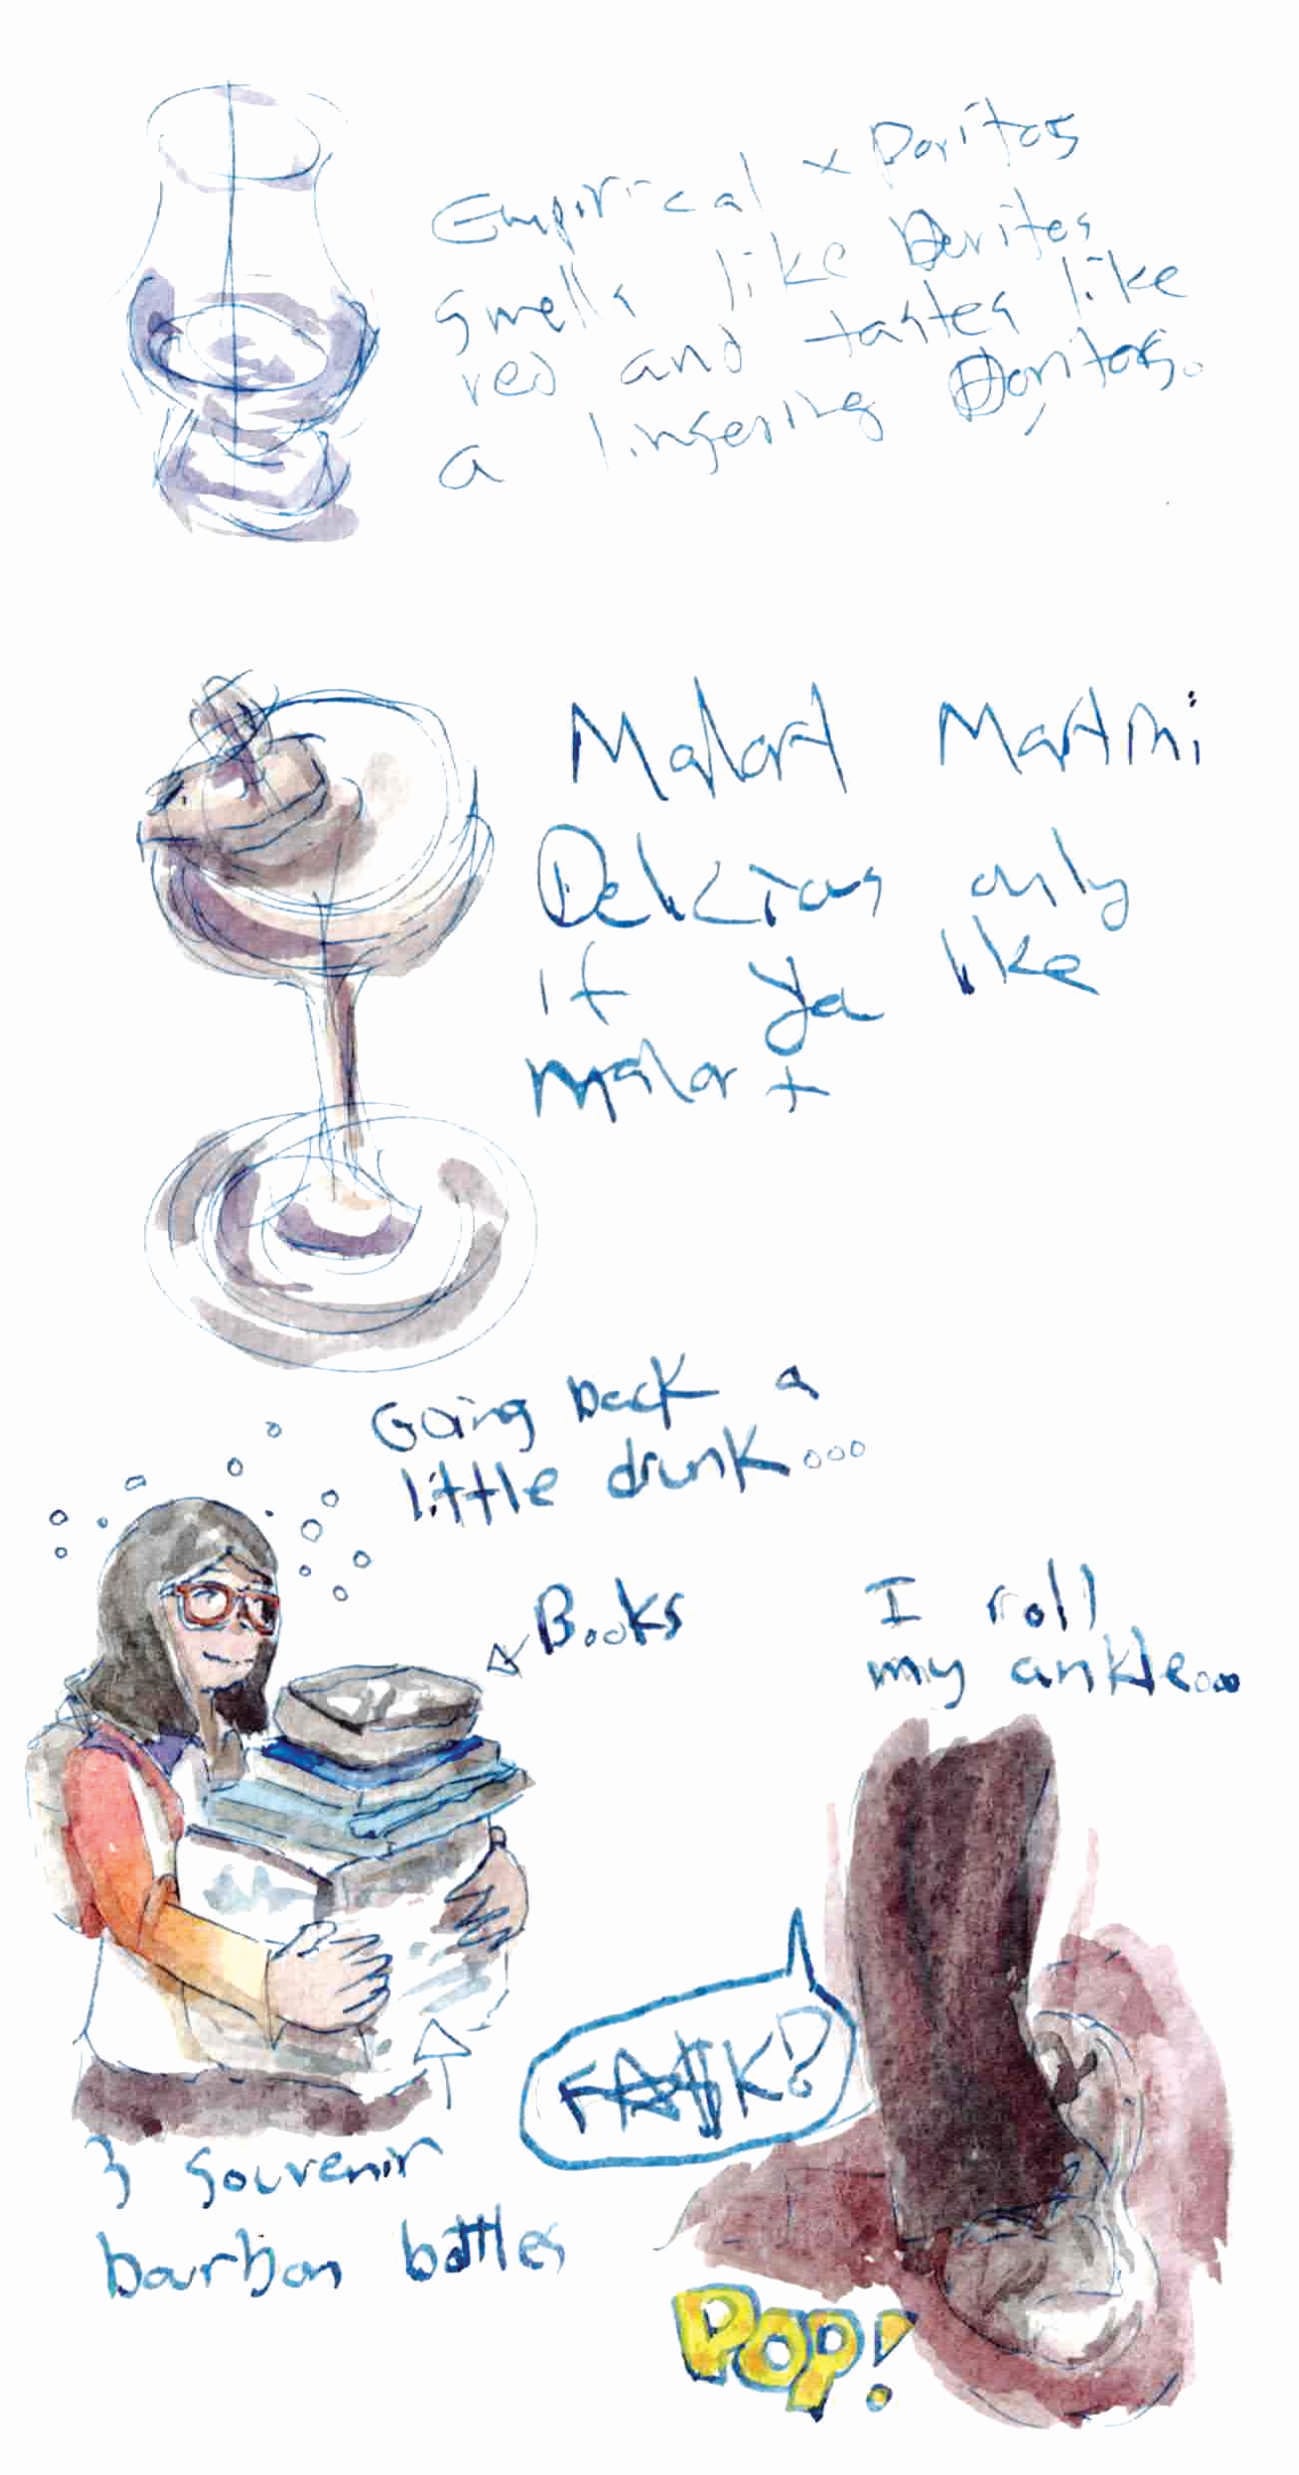 Empirical x Doritos
smells like Doritos
red and tastes like
a lingering Doritos.
Malort Martini
Delicious only
if ya like
malort
Going back a
little drunk...
Books
I roll
my ankle...
FA$K!?
3 souvenir
bourbon bottles
POP!